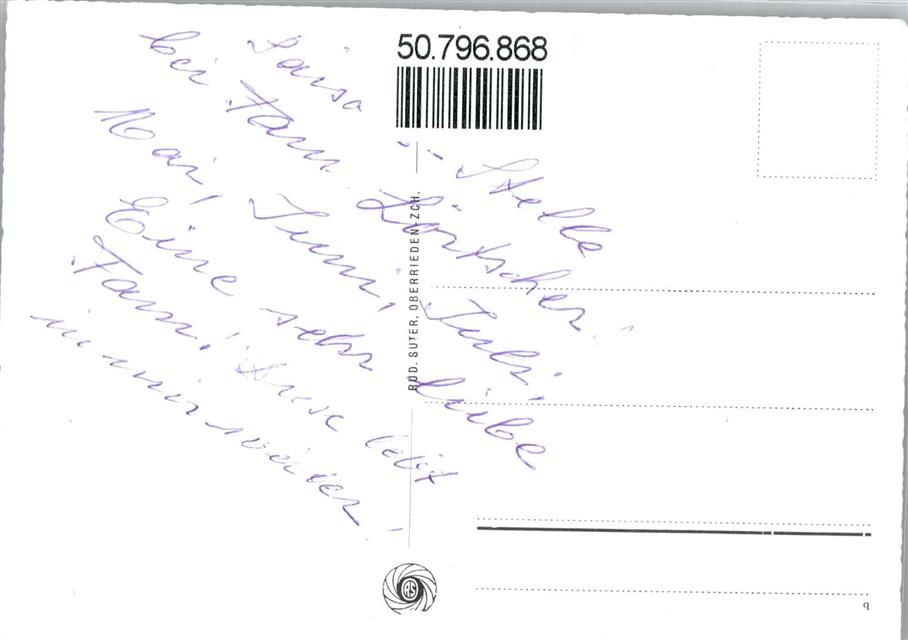 50.796.868
Saiso - Stelle
bei Fam. Lörtscher.
Mai, Juni, Juli.
Eine sehr liebe
Fam.! Diese lebt
in mir weiter -
RUD. SUTER, OBERRIEDEN-ZCH.
RS